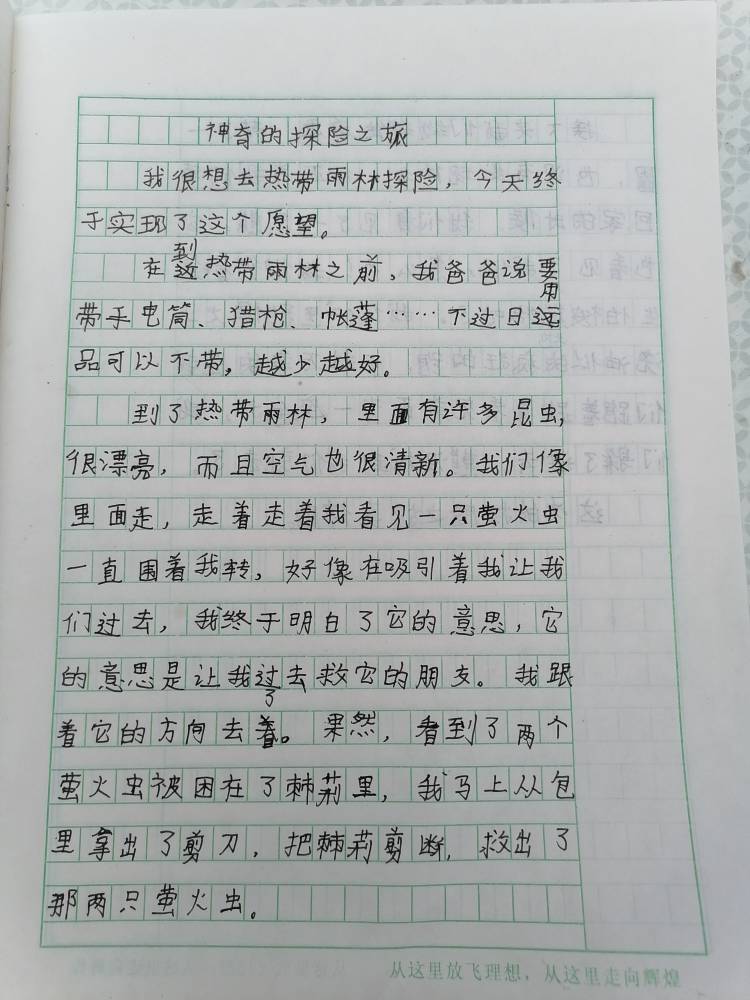 神奇的探险之旅
我很想去热带雨林探险，今天终
于实现了这个愿望。
在到这热带雨林之前，我爸爸说要
带手电筒、猎枪、帐蓬……不过日用
品可以不带，越少越好。
到了热带雨林，里面有许多昆虫，
很漂亮，而且空气也很清新。我们像
里面走，走着走着我看见一只萤火虫
一直围着我转，好像在吸引着我让我
们过去，我终于明白了它的意思，它
的意思是让我过去救它的朋友。我跟
着它的方向去了。果然，看到了两个
萤火虫被困在了棘荆里，我马上从包
里拿出了剪刀，把棘荆剪断，救出了
那两只萤火虫。
从这里放飞理想，从这里走向辉煌